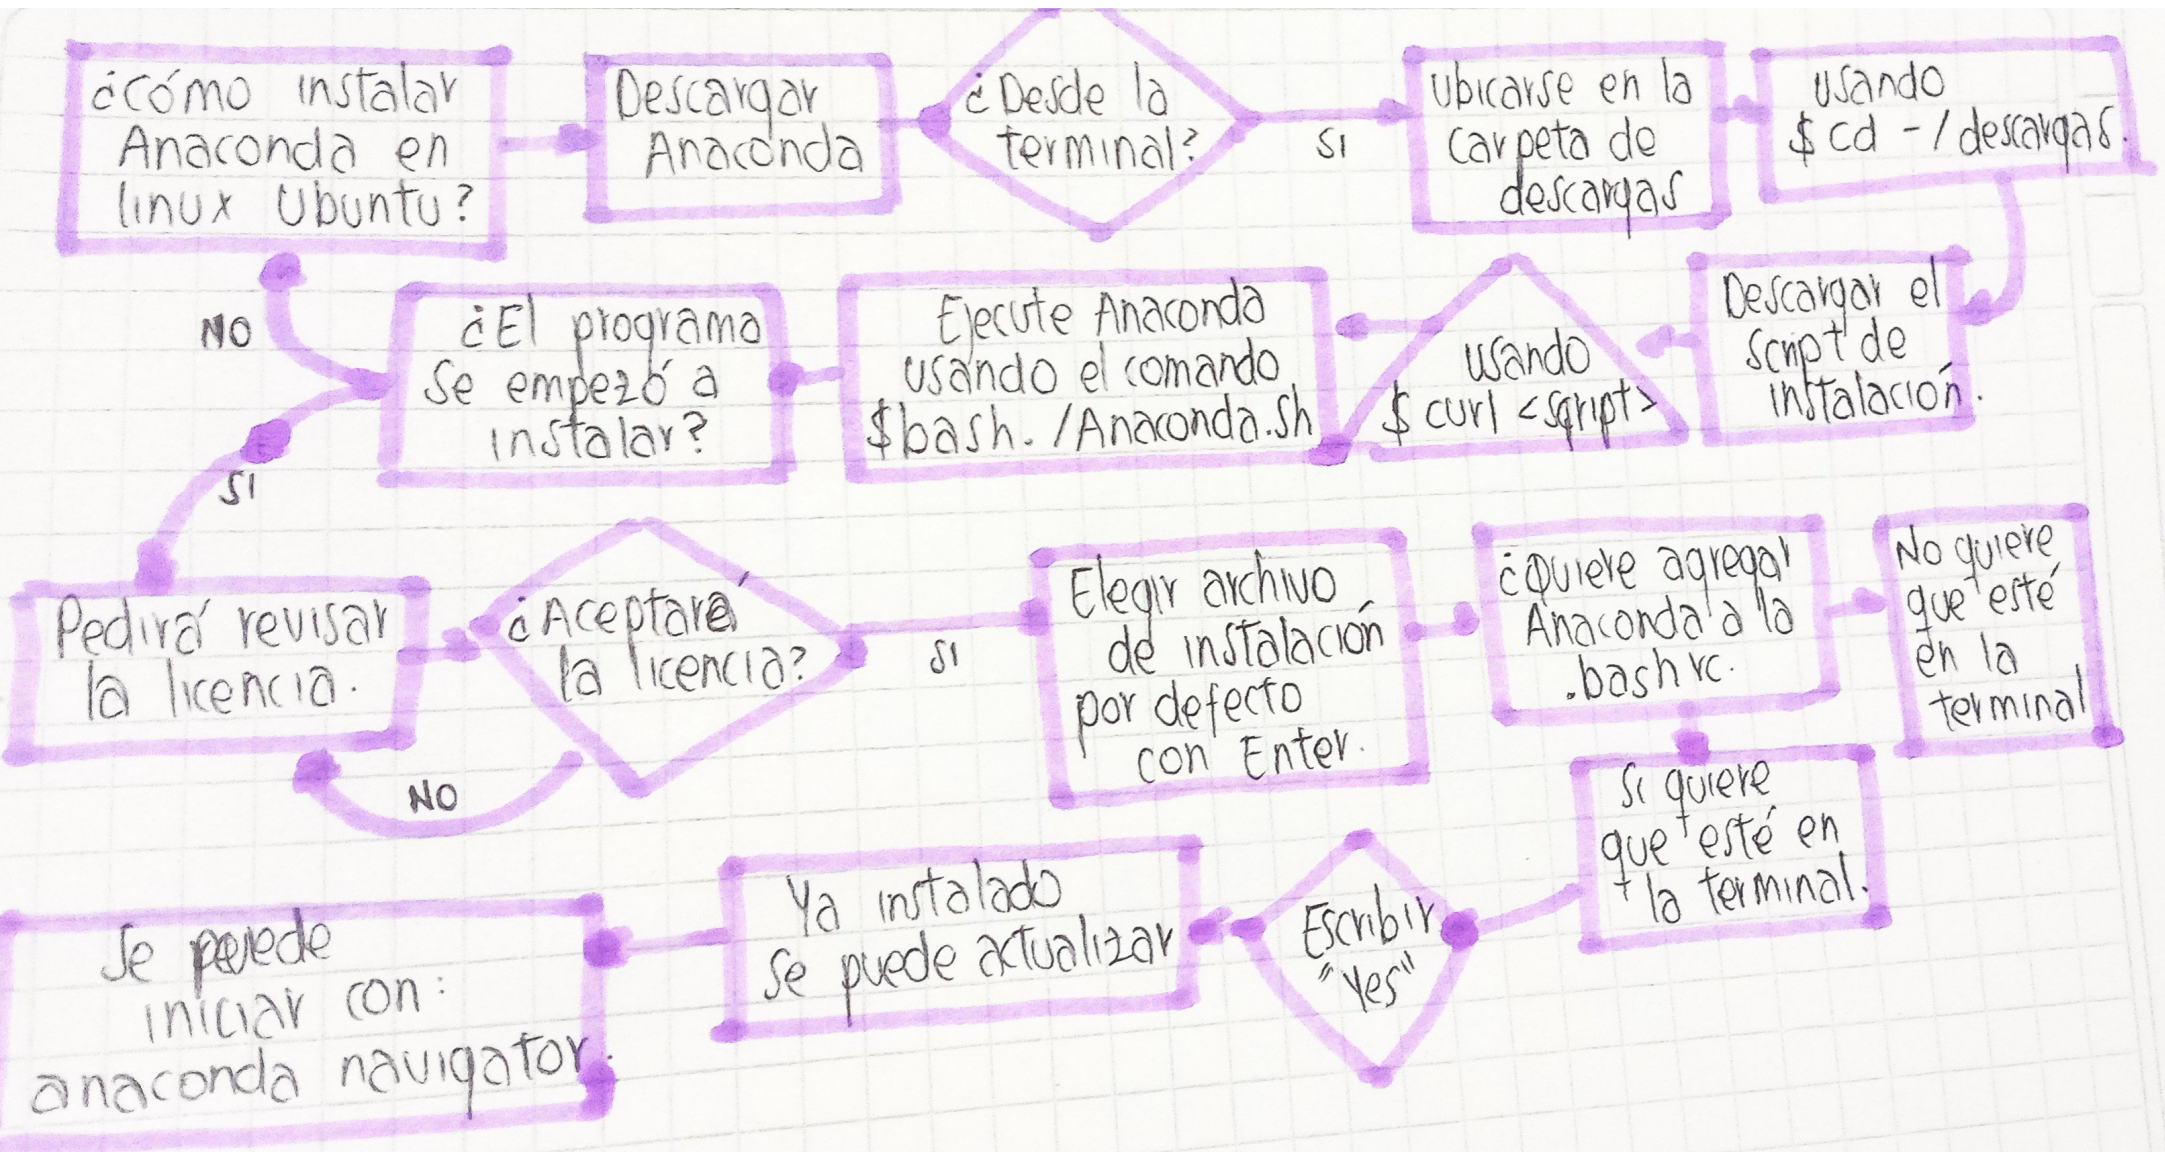 ¿Cómo instalar
Anaconda en
linux Ubuntu?
Descargar
Anaconda
¿Desde la
terminal?
SI
Ubicarse en la
carpeta de
descargas
usando
$ cd -/descargas.
Descargar el
script de
instalación.
usando
$ curl <sqript>
Ejecute Anaconda
usando el comando
$bash. /Anaconda.sh
¿El programa
se empezó a
instalar?
NO
SI
Pedirá revisar
la licencia.
¿Aceptará
la licencia?
NO
SI
Elegir archivo
de instalación
por defecto
con Enter.
¿Quiere agregar
Anaconda a la
.bashrc.
No quiere
que esté
en la
terminal
Si quiere
que esté en
la terminal.
Escribir
"Yes"
Ya instalado
se puede actualizar
Se puede
iniciar con:
anaconda navigator.